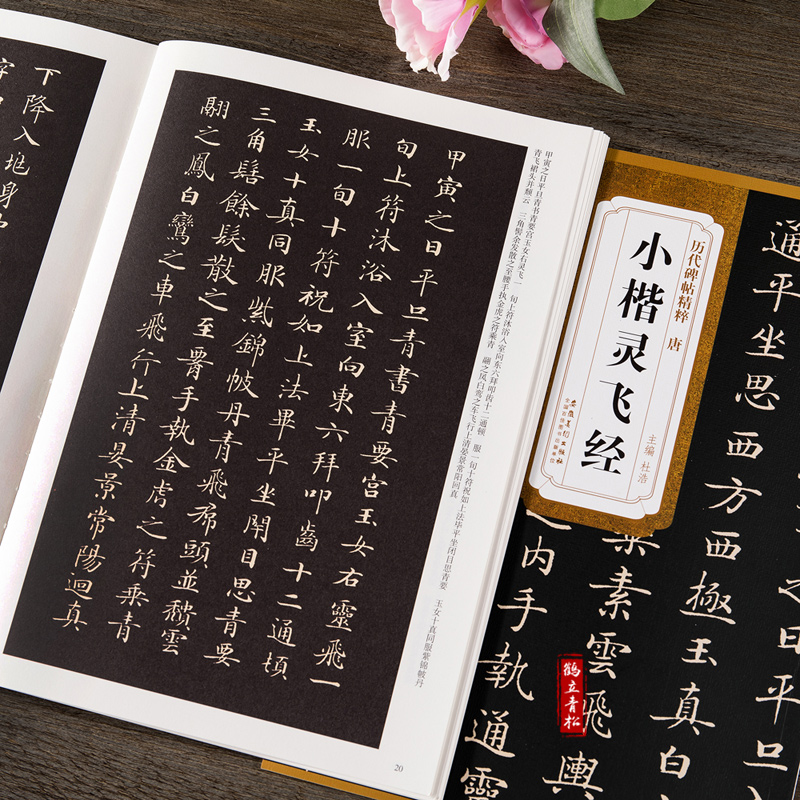 下降入地身中
甲寅之日平旦青書青要宮玉女右靈飛一
旬上符沐浴入室向東六拜叩齒十二通頓
服一旬十符祝如上法畢平坐閉目思青要
玉女十真同服紫錦帔丹青飛帬頭並頹雲
三角髻餘髮散之至腰手執金虎之符乘青
翮之鳳白鸞之車飛行上清晏景常陽迴真
甲寅之日平旦青书青要宫玉女右灵飞一 旬上符沐浴入室向东六拜叩齿十二通顿 服一旬十符祝如上法毕平坐闭目思青要 玉女十真同服紫锦帔丹
青飞裙头并颓云 三角髻余发散之至腰手执金虎之符乘青 翮之凤白鸾之车飞行上清晏景常阳回真
20
历代碑帖精粹 唐
小楷灵飞经
主编 杜浩
安徽美术出版社
全国百佳图书出版单位
之日平旦
通平坐思西方西極玉真白
乘素雲飛輿
之内手執通靈
鹤立青松